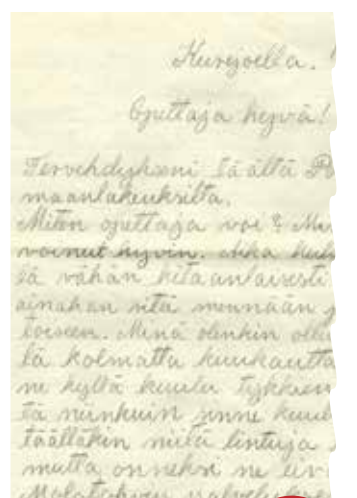 Kurejoella.
Opettaja hyvä!
Tervehdykseni täältä Po
maanlakeuksilta.
Miten opettaja voi? Mi
voinut hyvin. Aika kulu
tä vähän kitaanlaisesti
ainahan sitä mennään
toiseen. Minä olenkin ollu
tä kolmatta kuukautta
ne kyllä kuulu tykkien
tä niinkuin sinne kuul
täälläkin niitä lintuja
mutta onneksi ne eivä